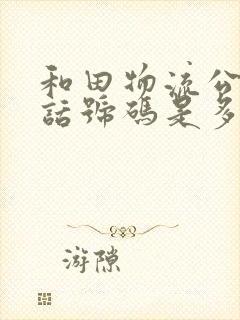 和田物流公
話號碼是多
游隙